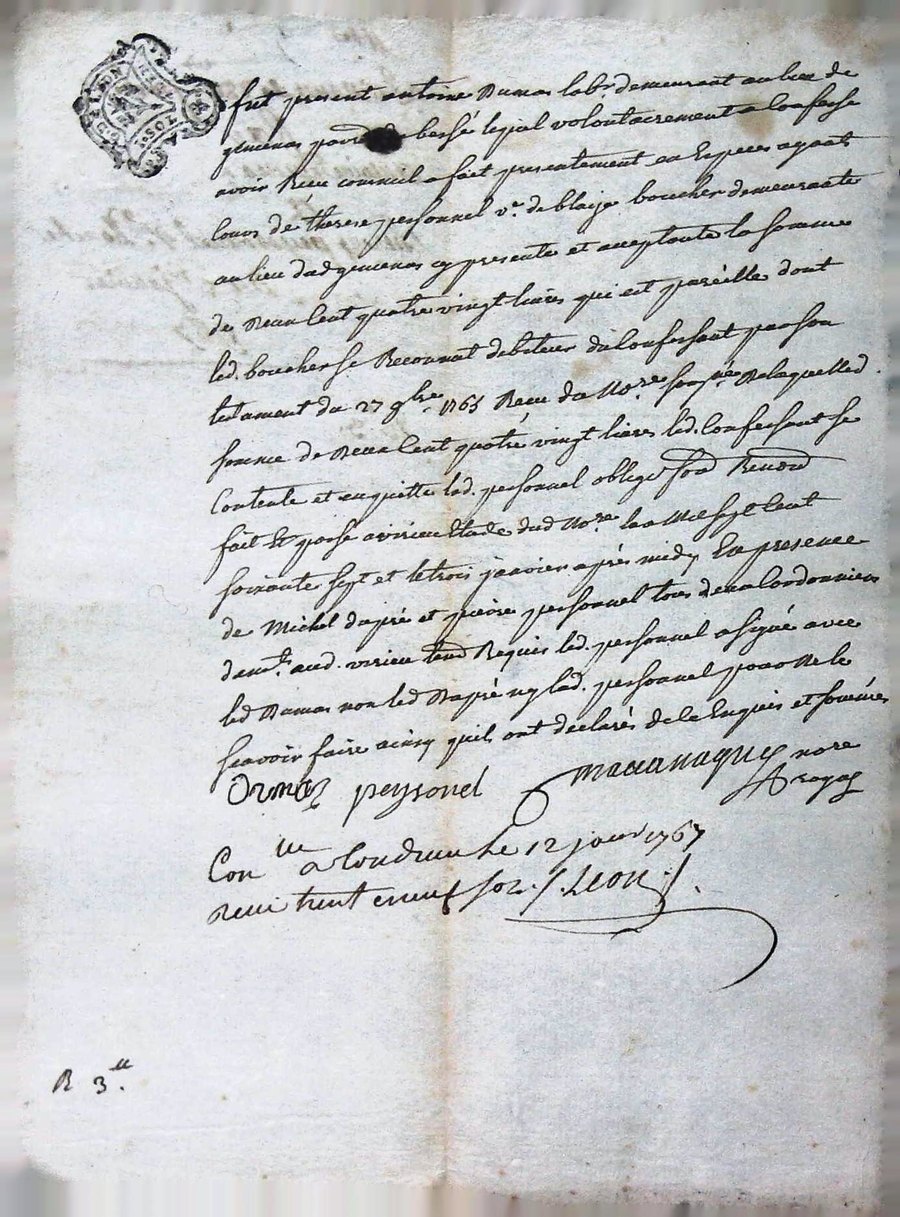 fut present antoine Dumas labr demeurant au lieu de
gemenas par bessé lequel volontairement a confessé
avoir Reçu comme il a fait presentement en Especes ayant
cours de therese personnel ve. de blaize boucher demeurante
au lieu dud gemenas cy presente et acceptante la somme
de Deux Cent quatre vingt livres qui est pareille dont
led. boucher se Reconnut debiteur du Confessant par son
testament du 27 9bre 1765 Recu du Nore sousné De laquelle d.
somme de Deux Cent quatre vingt livres led. Confessant se
Contente et en quitte lad. personnel oblige
fait Et passé a virieu Etude dud Nore l'an Mil sept Cent
soixante sept et le trois janvier après midy En presence
de Michel dapré et pierre personnel tous deux Cordonniers
demts. aud. virieu Requis led. personnel a signé avec
led Dumas non led Dapré ny lad. personnel pour Ne le
sçavoir faire ainsy quils ont declarés de ce Enquis et sommés
peysonel nore
Royal
Con lle a Condrieu le 12 janr 1767
recu trent e neuf soz. /. Leon ./.
R 3 ll.
GEN. DE LYON
1 SOL